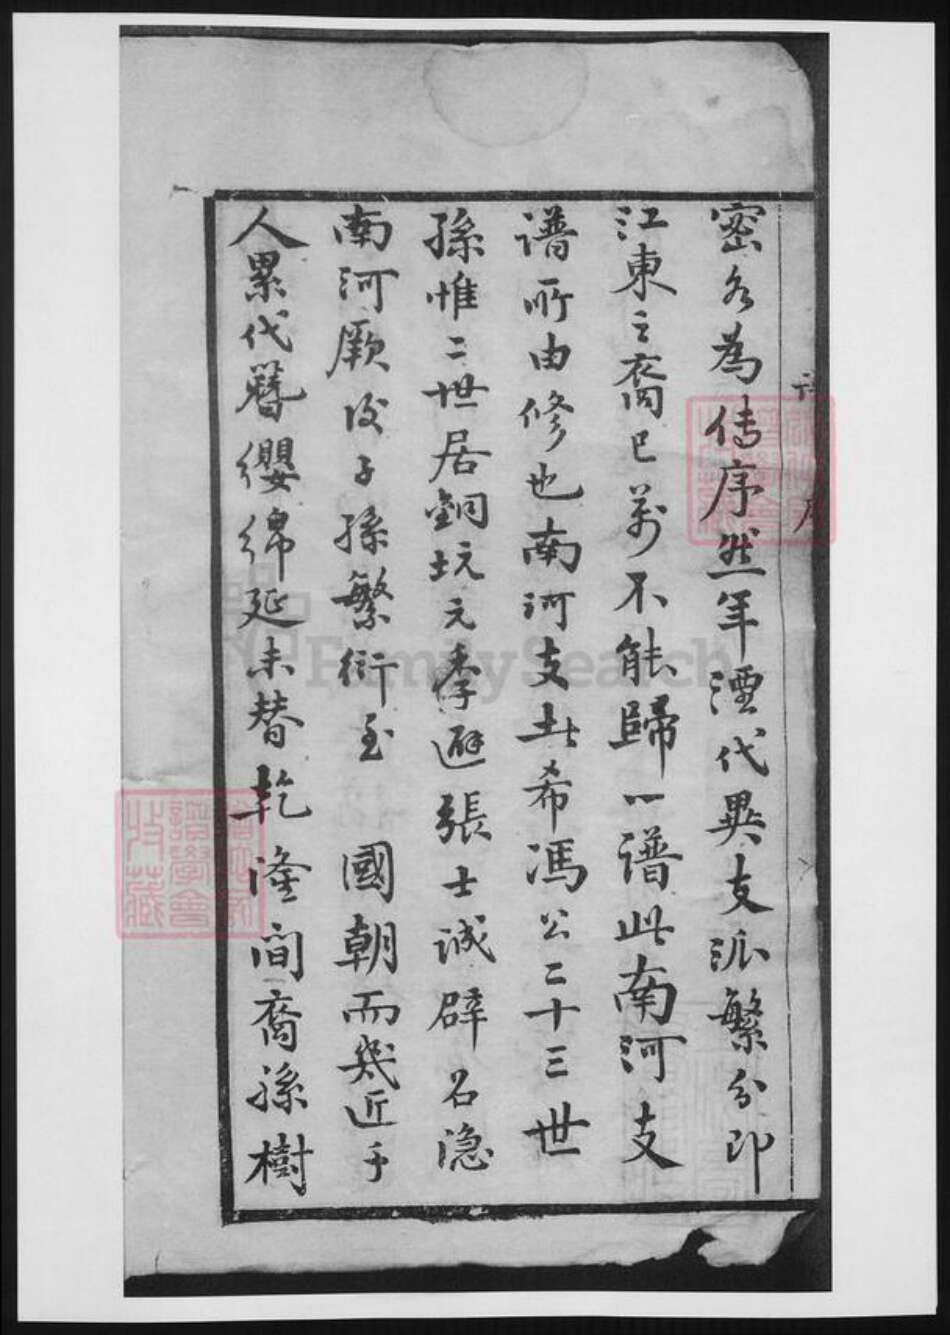 密各為傳序然年湮代異支派繁分即
江東之裔已萬不能歸一譜此南河支
譜所由修也南河支出希馮公二十三世
孫惟二世居銅坑元季避張士誠辟召隐
南河厥後子孫繁衍至 國朝而幾近千
人累代簪纓綿延未替乾隆间裔孫樹
序
FamilySearch
譜學會
收藏
譜學會
收藏